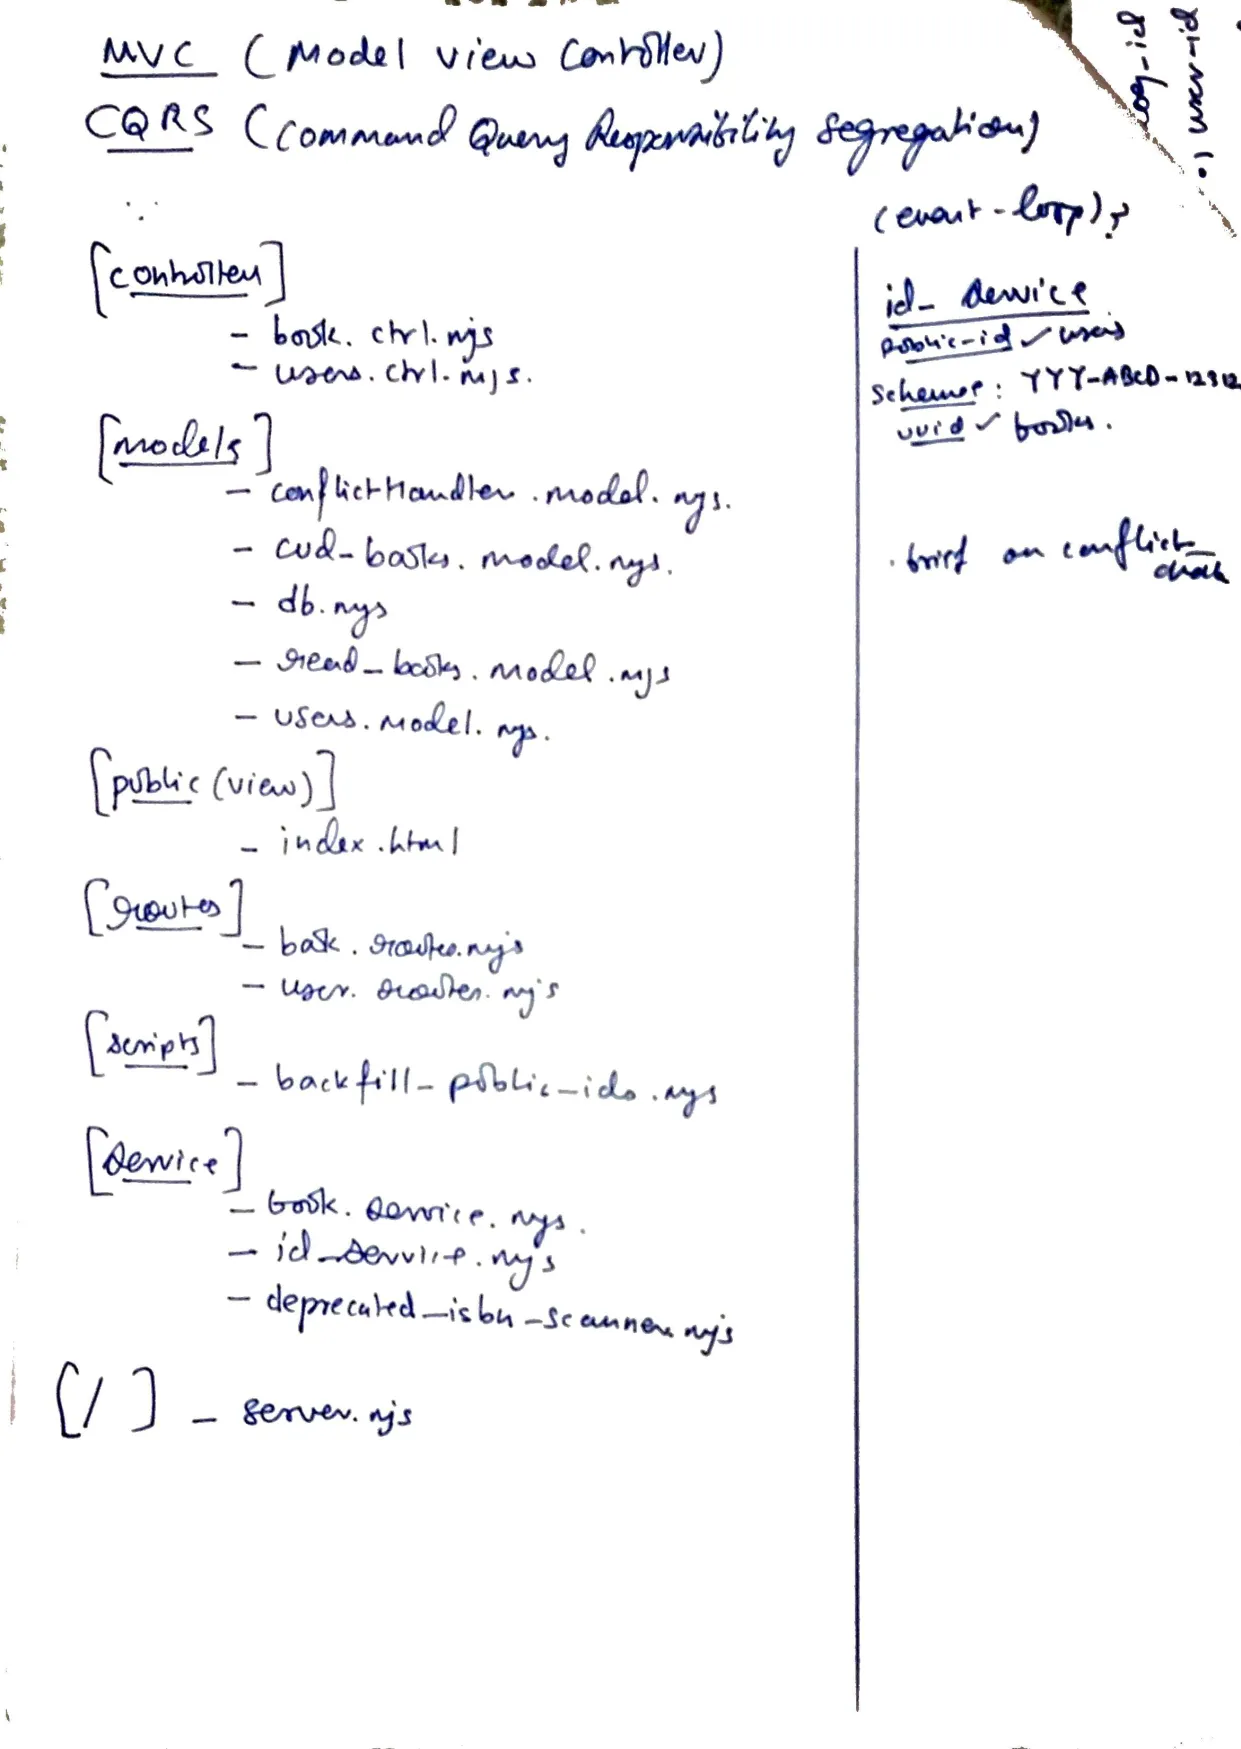 MVC (Model view Controller)
CQRS (Command Query Responsibility Segregation)
(event-loop)?
[controller]
- book.ctrl.mjs
- users.ctrl.mjs.
[models]
- conflictHandler.model.mjs.
- cud-books.model.mjs.
- db.mjs
- read_books.model.mjs
- users.model.mjs.
[public (view)]
- index.html
[routes]
- book.routes.mjs
- user.routes.mjs
[scripts]
- backfill-public-ids.mjs
[service]
- book.service.mjs.
- id_service.mjs
- deprecated_isbn-scanner.mjs
[/] - server.mjs
id_service
public-id ✓ users
scheme: YYY-ABCD-12312
uuid ✓ books.
. brief on conflict